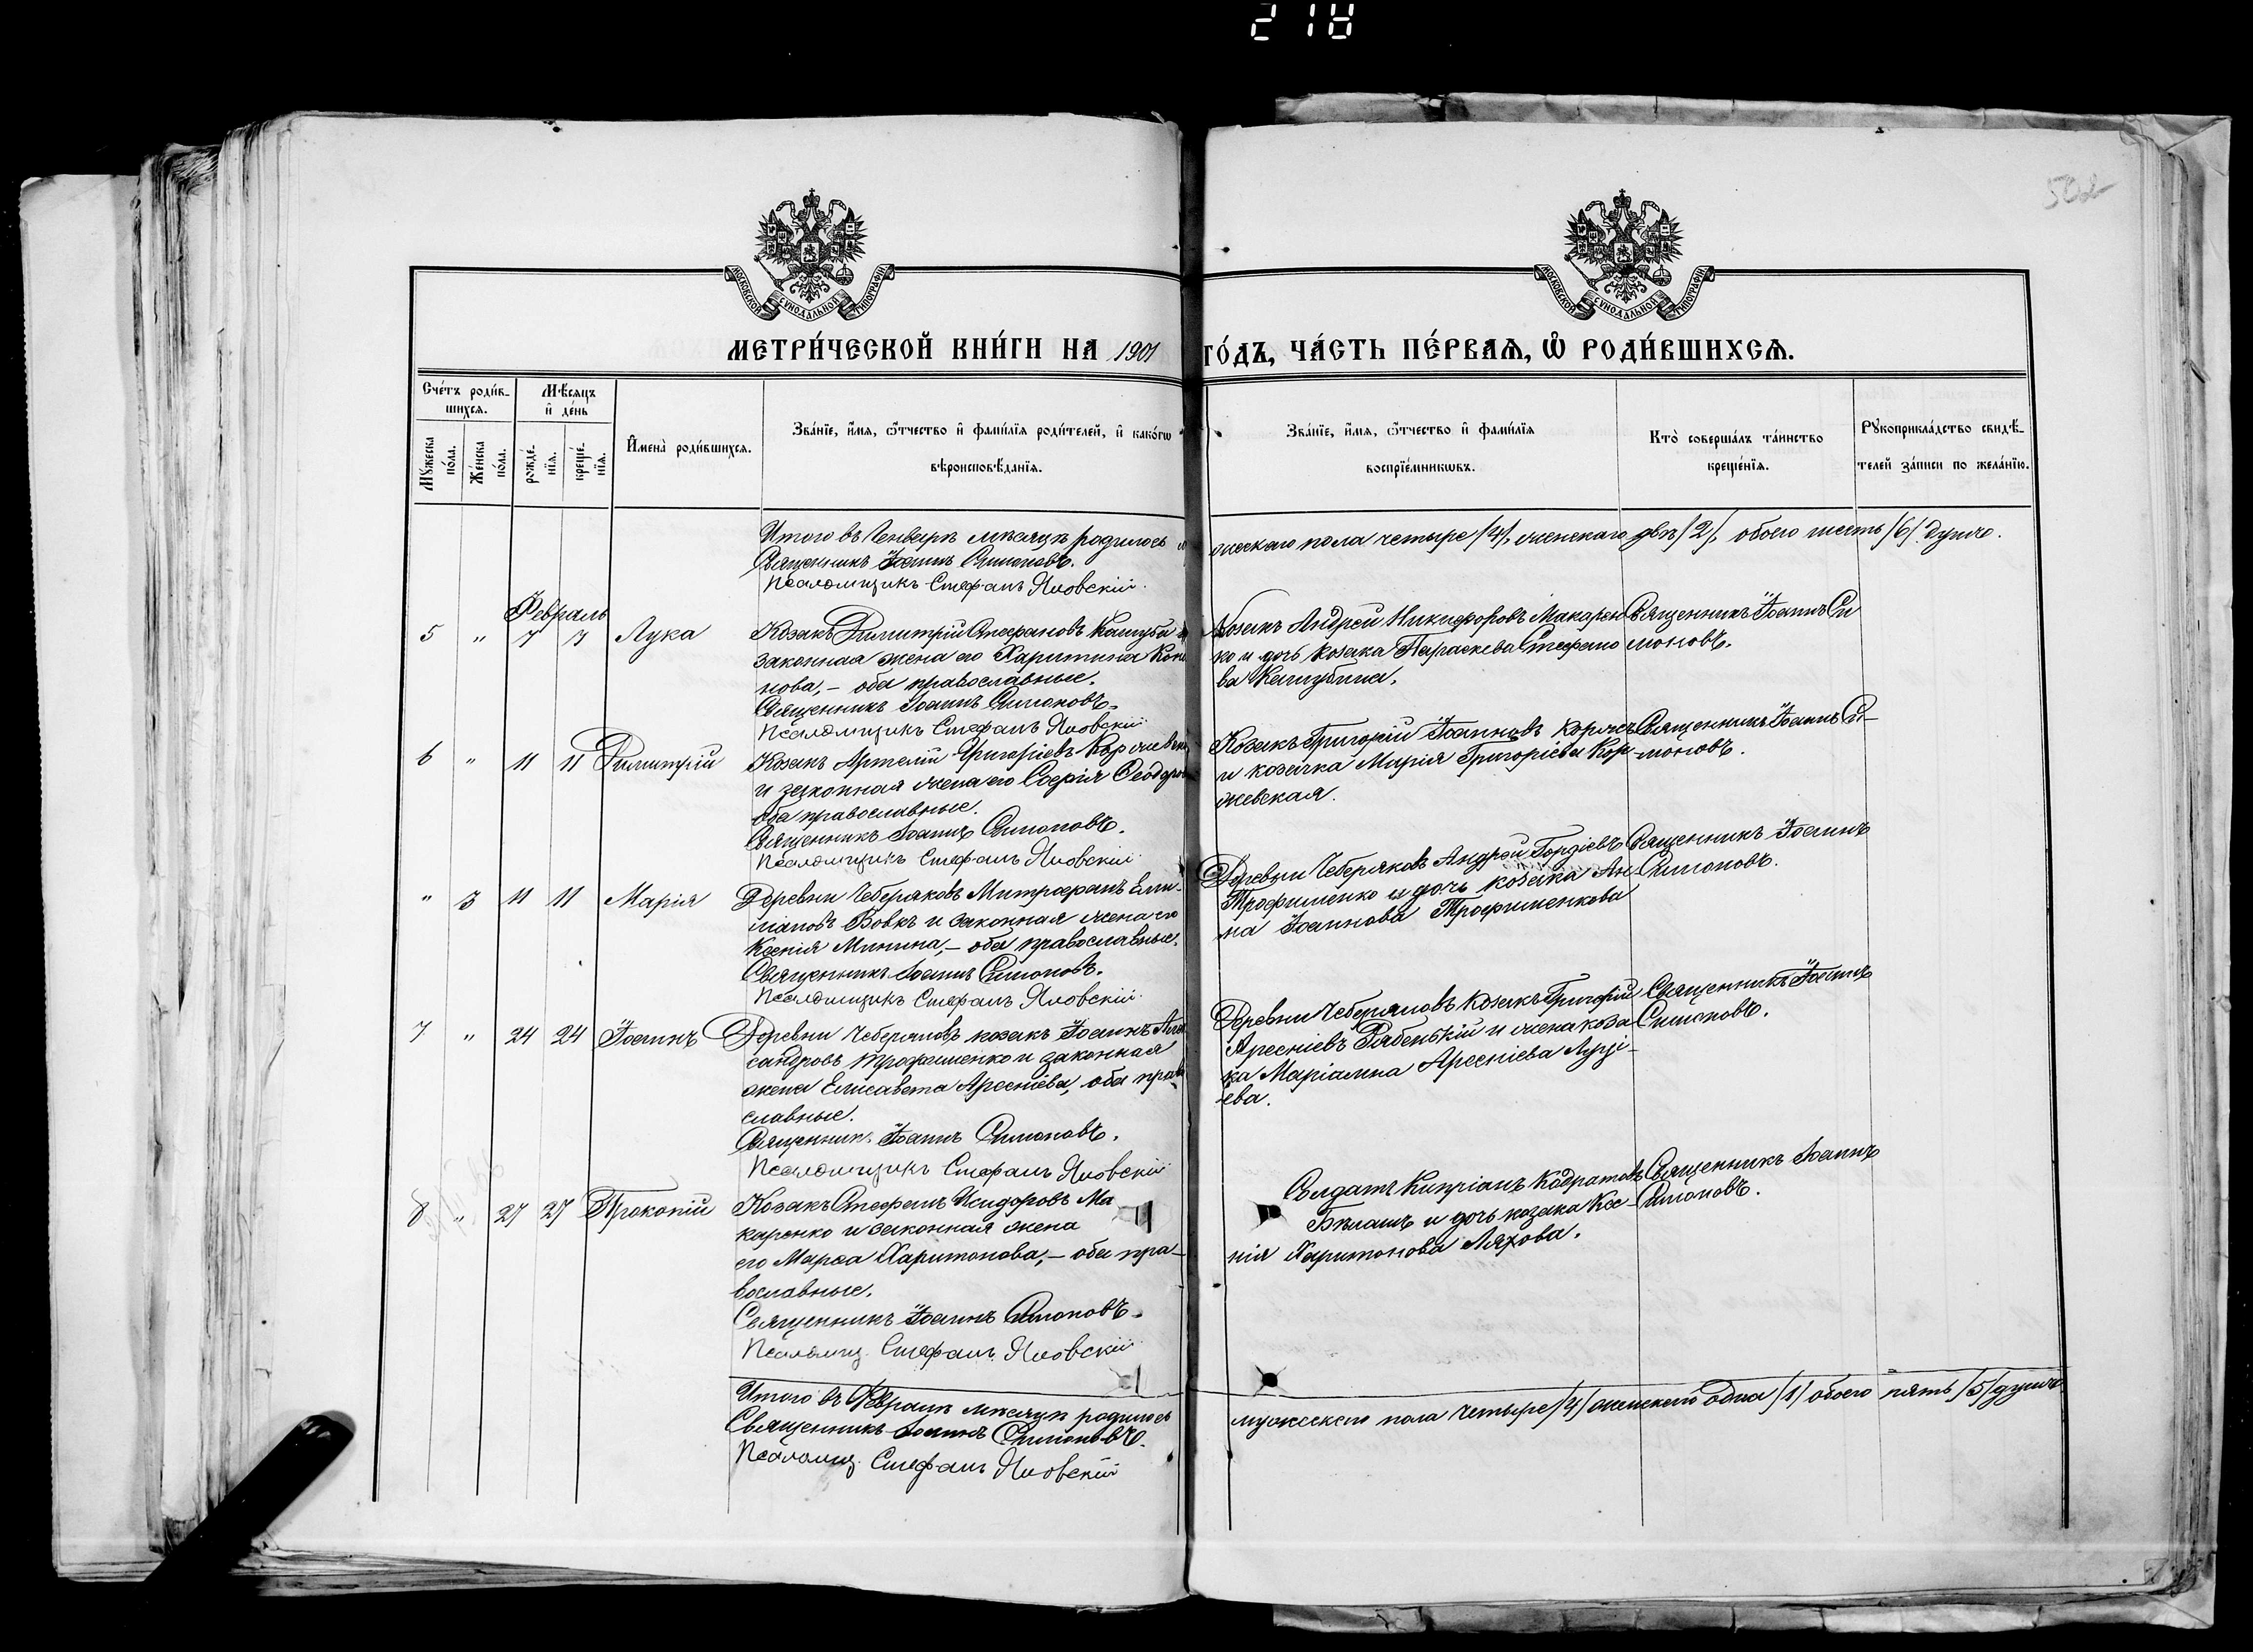 218
50об
МОСКОВСКОЙ СУНОДАЛЬНОЙ ТИПОГРАФІИ
МОСКОВСКОЙ СУНОДАЛЬНОЙ ТИПОГРАФІИ
МЕТРИ́ЧЕСКОЙ КНИ́ГИ НА 1901 ГО́ДЪ, ЧА́СТЬ ПЕ́РВАѦ, Ѡ РОДИ́ВШИХСѦ.
Сче́тъ роди́в-
шихсѧ.
Мѣсяцъ
и де́нь
Мꙋжеска
по́ла.
Же́нска
по́ла.
рожде́-
нїѧ.
креще́-
нїѧ.
Имена̀ роди́вшихсѧ.
Зва́нїе, и́мѧ, ѻ҆́тчество и фами́лїѧ роди́телей, и како́гѡ
вѣроисповѣ́данїѧ.
Зва́нїе, и́мѧ, ѻ҆́тчество и фами́лїѧ
воспрїе́мникѡвъ.
Кто̀ соверша́лъ та́инство
креще́нїѧ.
Рꙋкоприкла́дство свидѣ́-
телей за́писи по жела́нїю.
Итого въ Генварѣ мѣсяцѣ родилось
Священникъ Іоаннъ Симоновъ.
Псаломщикъ Стефанъ Яновскій.
жескаго пола четыре /4/, женскаго двѣ /2/, обоего шесть /6/ душъ.
Февраль
5 " 7 7 Лука
Козакъ Димитрій Стефановъ Кашуба и
законная жена его Харитина Коно
нова, – оба православные.
Священникъ Іоаннъ Симоновъ.
Псаломщикъ Стефанъ Яновскій
Козакъ Андрей Никифоровъ Макарен
ко и дочь козака Параскева Стефано
ва Кашубина.
Священникъ Іоаннъ Си
моновъ.
6 " 11 11 Димитрій
Козакъ Артемій Григоріевъ Коржевск
и законная жена его Софія Феодоро
оба православные.
Священникъ Іоаннъ Симоновъ.
Псаломщикъ Стефанъ Яновскій
Козакъ Григорій Іоанновъ Коржев
и козачка Марія Григоріева Кор-
жевская.
Священникъ Іоаннъ Си-
моновъ.
" 3 11 11 Марія
Деревни Чеберяковъ Митрофанъ Еми-
ліановъ Вовкъ и законная жена его
Ксенія Минина, – оба православные.
Священникъ Іоаннъ Симоновъ.
Псаломщикъ Стефанъ Яновскій
Деревни Чеберяковъ Андрей Гордіевъ
Трофименко и дочь козака Ан-
на Іоаннова Трофименкова
Священникъ Іоаннъ
Симоновъ.
7 " 24 24 Іоаннъ
Деревни Чеберяковъ козакъ Іоаннъ Алек
сандровъ Трофименко и законная
жена Елисавета Арсеніева, оба право
славные.
Священникъ Іоаннъ Симоновъ.
Псаломщикъ Стефанъ Яновскій
Деревни Чеберяковъ козакъ Григорій
Арсеніевъ Рябенькій и жена коза
ка Маріамна Арсеніева Луці-
ева.
Священникъ Іоаннъ
Симоновъ.
8 " 27 27 Прокопій
Козакъ Стефанъ Исидоровъ Ма
каренко и законная жена
его Марѳа Харитонова, – оба пра-
вославные.
Священникъ Іоаннъ Симоновъ.
Псаломщ. Стефанъ Яновскій
Солдатъ Кипріанъ Кодратовъ
Бѣлашъ и дочь козака Ксе-
нія Харитонова Ляхова.
Священникъ Іоаннъ
Симоновъ.
Итого въ Февралѣ мѣсяцѣ родилось
Священникъ Іоаннъ Симоновъ.
Псаломщ. Стефанъ Яновскій
мужескаго пола четыре /4/ женскаго одна /1/ обоего пять /5/ душъ